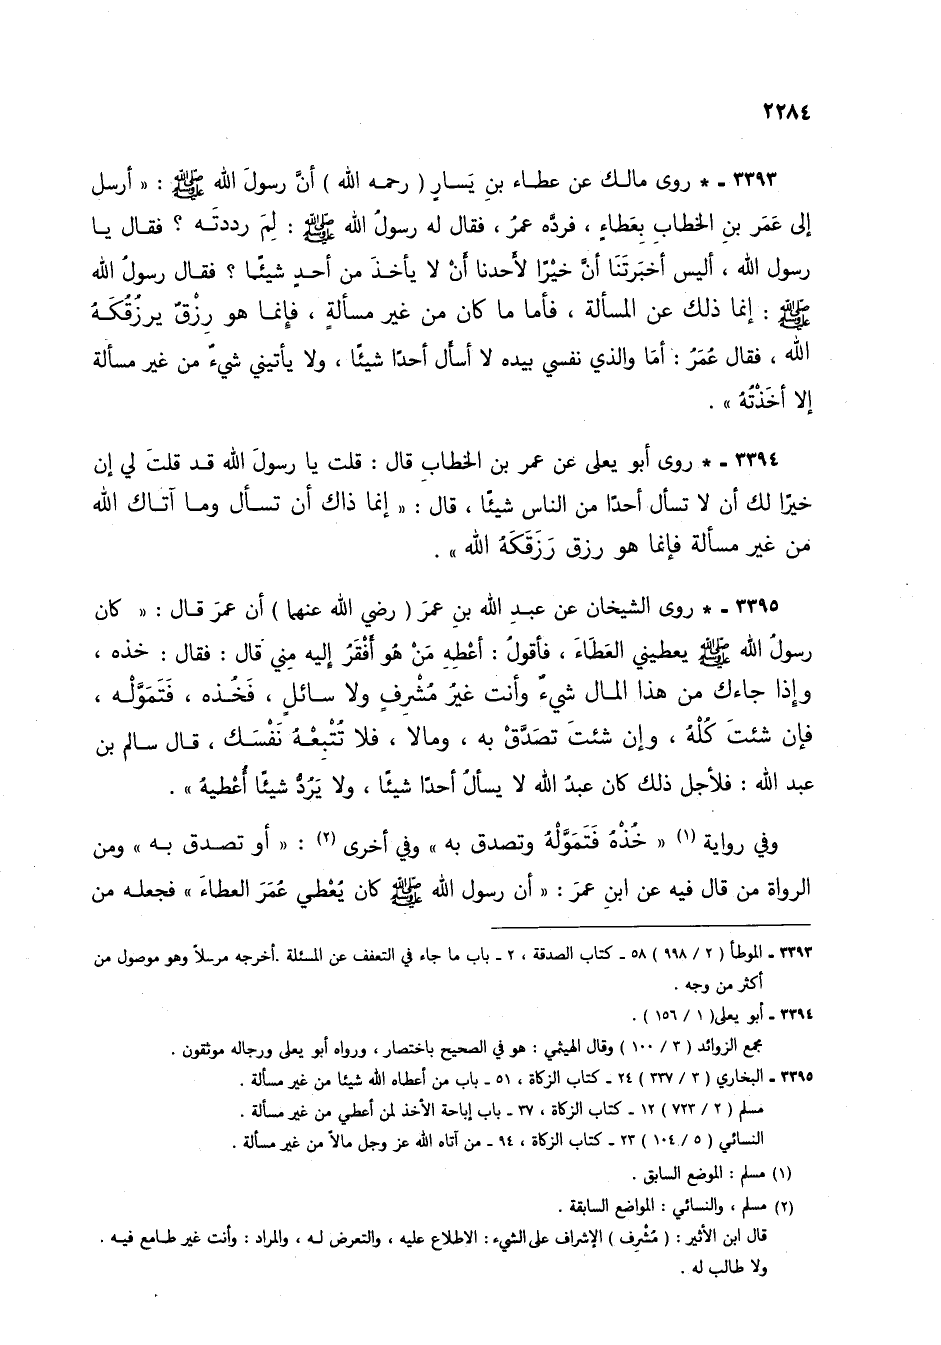 ٢٢٨٤
٣٣٩٣ - * روى مالك عن عطاء بنِ يَسارٍ ( رحمه الله ) أنَّ رسولَ الله ﷺ : « أرسل
إلى عَمَر بنِ الخطاب بِعَطاءٍ ، فردَّه عمرُ ، فقال له رسولُ الله ﷺ : لِمَ رددتَه ؟ فقال يا
رسول الله ، أليس أخبَرتَنَا أنَّ خيْرًا لأحدنا أنْ لا يأخذَ من أحدٍ شيئًا ؟ فقال رسولُ الله
ﷺ : إنما ذلك عن المسألة ، فأما ما كان من غير مسألةٍ ، فإنما هو رِزْقٌ يرزُقُكَهُ
الله ، فقال عُمَرُ : أمَا والذي نفسي بيده لا أسأَل أحدًا شيئًا ، ولا يأتيني شيءٌ من غير مسألة
إلا أخَذْتُهُ » .
٣٣٩٤ - * روى أبو يعلى عن عمر بن الخطاب قال : قلت يا رسولَ الله قد قلتَ لي إن
خيرًا لك أن لا تسأل أحدًا من الناس شيئًا ، قال : « إنما ذاك أن تسأل وما آتاك الله
من غير مسألة فإنما هو رزق رَزَقَكَهُ الله » .
٣٣٩٥ - * روى الشيخان عن عبدِ الله بنِ عمرَ ( رضي الله عنهما ) أن عمرَ قال : « كان
رسولُ الله ﷺ يعطيني العَطَاءَ ، فأقولُ : أعْطِهِ مَنْ هُو أَفْقَرُ إليه مِني قال : فقال : خذه ،
وإذا جاءك من هذا المال شيءٌ وأنت غيرُ مُشْرِفٍ ولا سائلٍ ، فَخُذه ، فَتَمَوَّلْه ،
فإن شئتَ كُلْهُ ، وإن شئتَ تصَدَّقْ به ، ومالا ، فلا تُتْبِعْهُ نَفْسَك ، قال سالم بن
عبد الله : فلأجل ذلك كان عبدُ الله لا يسألُ أحدًا شيئًا ، ولا يَرُدُّ شيئًا أُعْطيهُ » .
وفي رواية (١) « خُذْهُ فَتَمَوَّلْهُ وتصدق به » وفي أخرى (٢) : « أو تصدق به » ومن
الرواة من قال فيه عن ابنِ عمرَ : « أن رسول الله ﷺ كان يُعْطي عُمَرَ العطاءَ » فجعله من
٣٣٩٣ - الموطأ ( ٢ / ٩٩٨ ) ٥٨ - كتاب الصدقة ، ٢ - باب ما جاء في التعفف عن المسئلة .أخرجه مرسلاً وهو موصول من
أكثر من وجه .
٣٣٩٤ - أبو يعلى( ١ / ١٥٦ ) .
مجمع الزوائد ( ٣ / ١٠٠ ) وقال الهيثمي : هو في الصحيح باختصار ، ورواه أبو يعلى ورجاله موثقون .
٣٣٩٥ - البخاري ( ٣ / ٣٣٧ ) ٢٤ - كتاب الزكاة ، ٥١ - باب من أعطاه الله شيئا من غير مسألة .
مسلم ( ٢ / ٧٢٣ ) ١٢ - كتاب الزكاة ، ٣٧ - باب إباحة الأخذ لمن أعطي من غير مسألة .
النسائي ( ٥ / ١٠٤ ) ٢٣ - كتاب الزكاة ، ٩٤ - من آتاه الله عز وجل مالاً من غير مسألة .
(١) مسلم : الموضع السابق .
(٢) مسلم ، والنسائي : المواضع السابقة .
قال ابن الأثير : ( مُشْرِف ) الإشراف على الشيء : الاطلاع عليه ، والتعرض له ، والمراد : وأنت غير طامع فيه .
ولا طالب له .